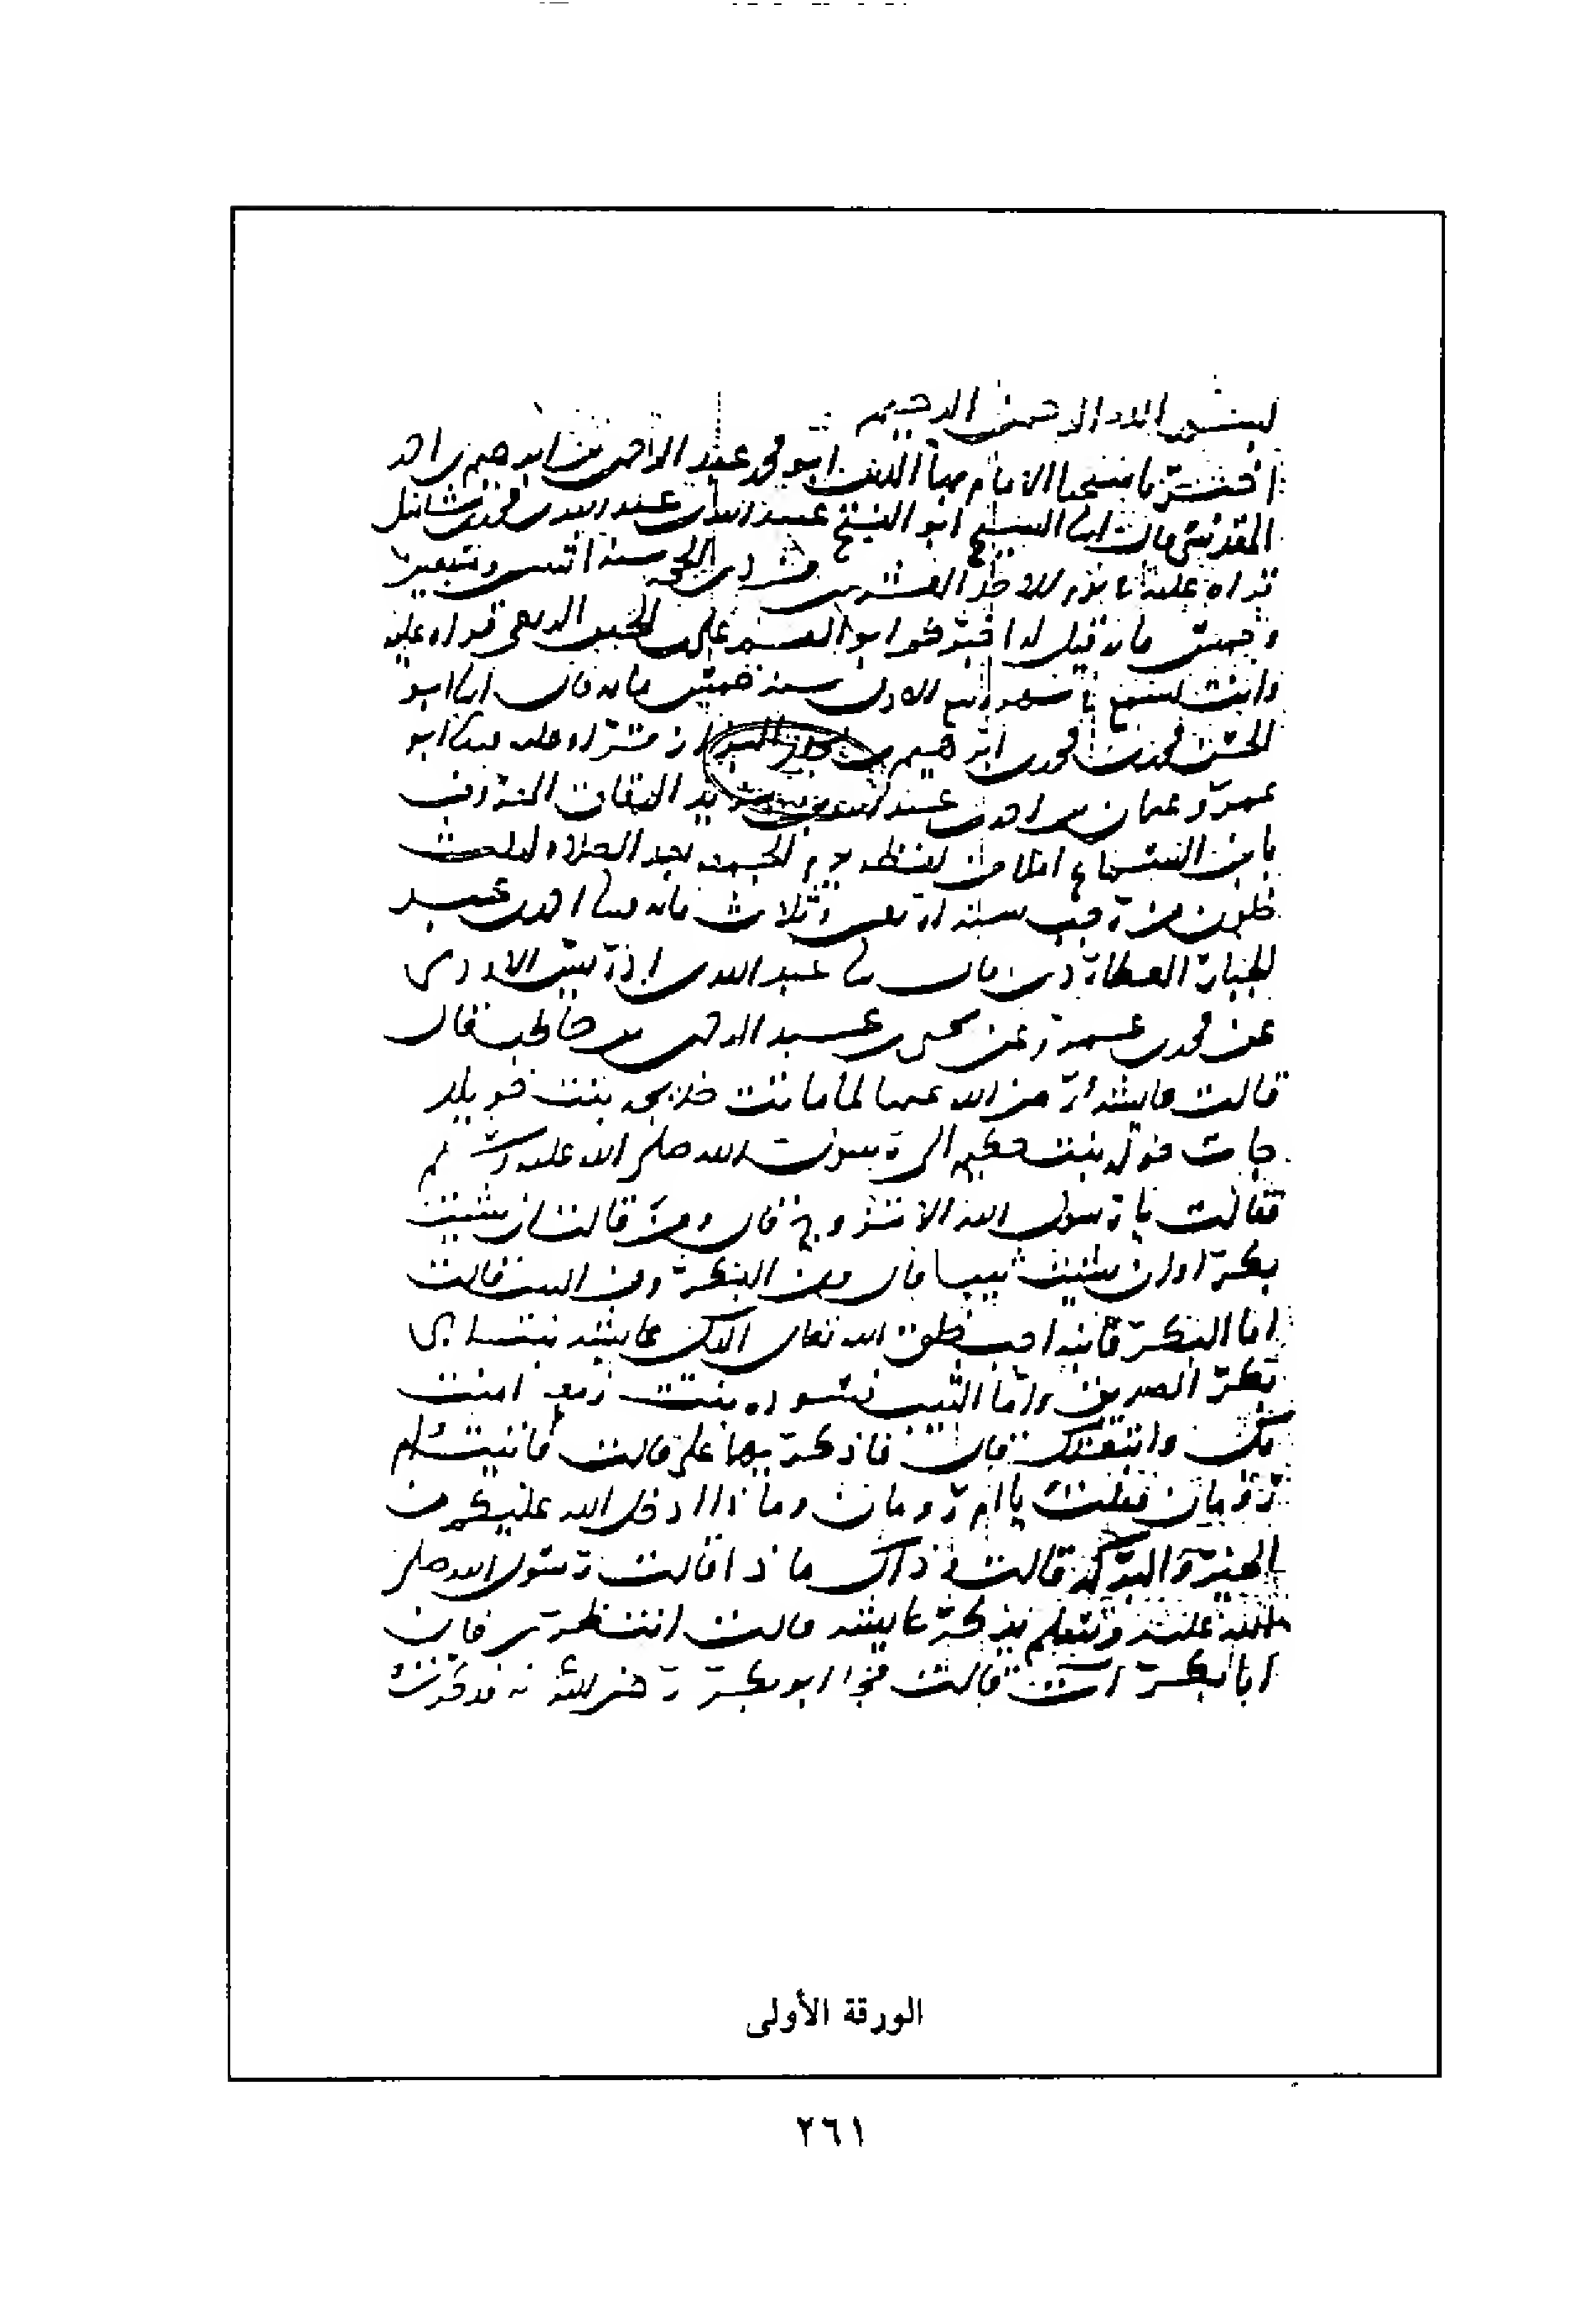 بسم الله الرحمن الرحيم
اخبرنا شيخنا الامام بها الدين ابو محمد عبد الرحمن بن ابرهيم بن احمد
المقدسي قال انا الشيخ ابو الفتح عبيد الله بن عبد الله بن محمد بن شاتيل
قراه عليه في يوم الاحد العشرين من الحجه سنة اثنتين وسبعين
وخمس مايه قيل له اخبركم ابو القسم علي بن الحسين الربعي قراه عليه
وانت تسمع في شهر ربيع الاول سنه خمس مايه قال انا ابو
الحسن محمد بن محمد بن ابرهيم بن مخلد البزاز قراه عليه ثنا ابو
عمرو عثمان بن احمد بن عبد الله بن يزيد الدقاق المعروف
بابن السماك املا من لفظه يوم الجمعه بعد الصلاه لثلاث
خلون من رجب سنه اربعين وثلاث مايه ثنا احمد بن عبد
الجبار العطاردي قال ثنا عبد الله بن ادريس الاودي
عن محمد بن عمرو عن يحيى بن عبد الرحمن بن حاطب قال
قالت عايشه رضي الله عنها لما ماتت خديجه بنت خويلد
جات خوله بنت حكيم الى رسول الله صلى الله عليه وسلم
فقالت يا رسول الله الا تزوج قال ومن قالت ان شيت
بكرا وان شيت ثيبا قال ومن البكر ومن الثيب قالت
اما البكر فابنه احب خلق الله تعالى اليك عايشه بنت ابي
بكر الصديق واما الثيب فسوده بنت زمعه امنت
بك واتبعتك قال فاذكريهما علي قالت فاتيت ام
رومان فقلت يا ام رومان وماذا ادخل الله عليكم من
الخير والبركه قالت وذاك ماذا قالت رسول الله صلى
الله عليه وسلم يذكر عايشه قالت انتظري فان
ابا بكر آت قالت فجا ابو بكر رضي الله عنه فذكرت
الورقة الأولى
٢٦١